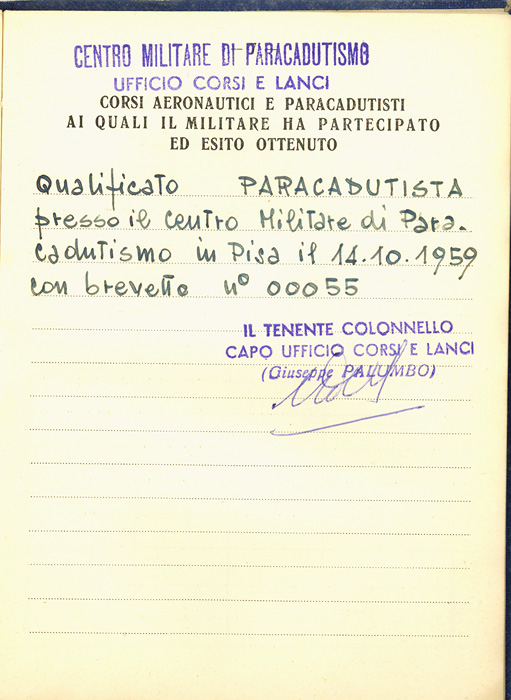 CENTRO MILITARE DI PARACADUTISMO
UFFICIO CORSI E LANCI
CORSI AERONAUTICI E PARACADUTISTI
AI QUALI IL MILITARE HA PARTECIPATO
ED ESITO OTTENUTO
Qualificato PARACADUTISTA
presso il Centro Militare di Para-
cadutismo in Pisa il 14.10.1959
con brevetto n° 00055
IL TENENTE COLONNELLO
CAPO UFFICIO CORSI E LANCI
(Giuseppe PALUMBO)